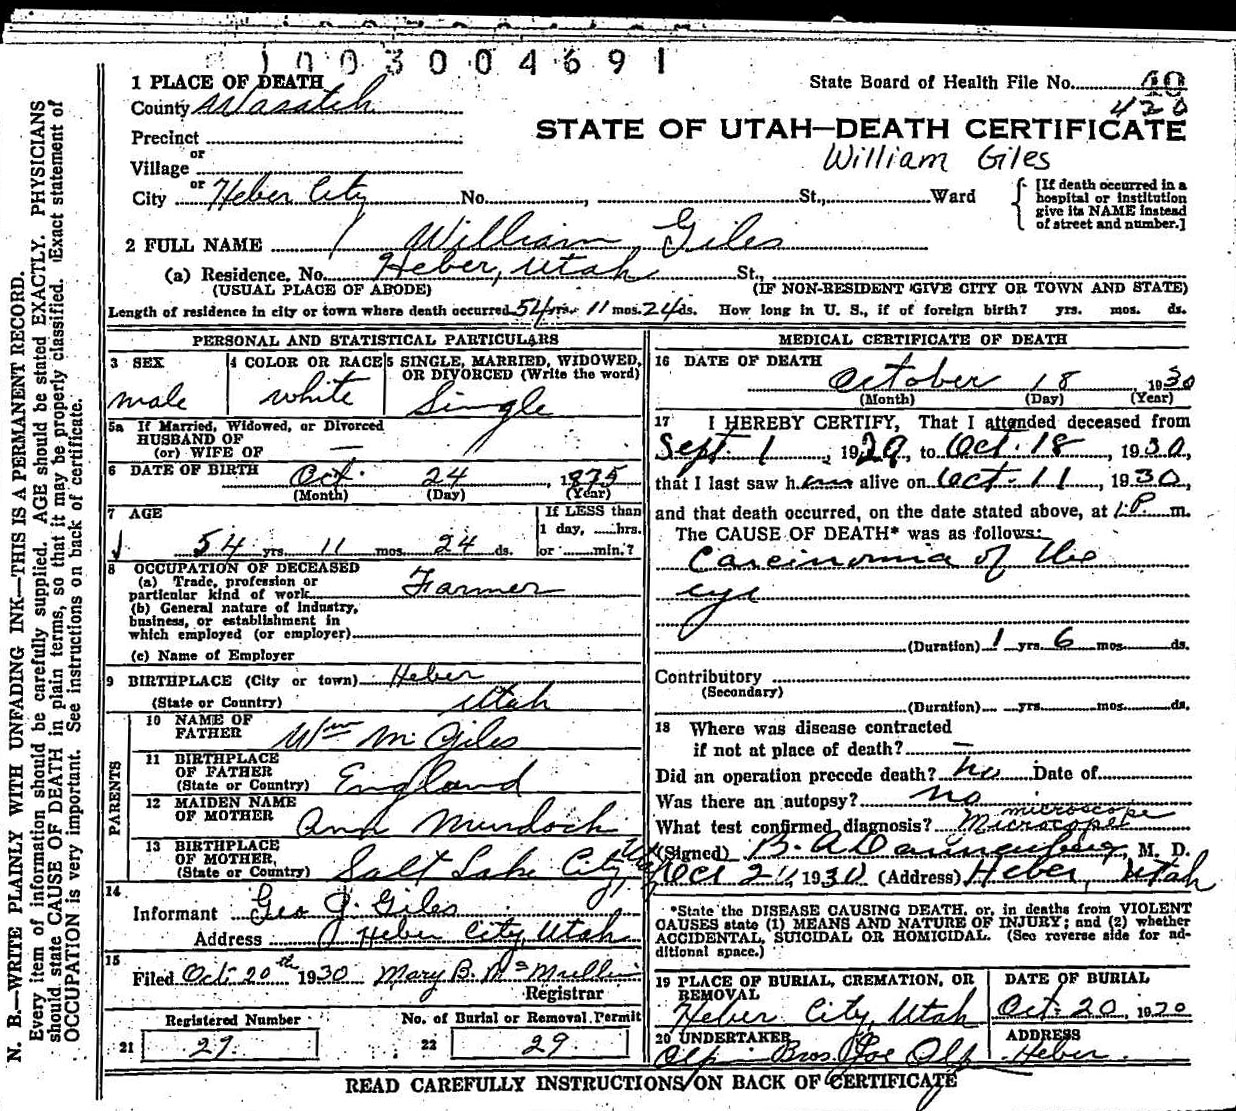 1003004691
1 PLACE OF DEATH
State Board of Health File No. 40
County Wasatch
420
Precinct
STATE OF UTAH—DEATH CERTIFICATE
or
William Giles
Village
or
City Heber City No. , St., Ward
[If death occurred in a hospital or institution give its NAME instead of street and number.]
2 FULL NAME William Giles
(a) Residence, No. Heber, Utah St.,
(USUAL PLACE OF ABODE) (IF NON-RESIDENT GIVE CITY OR TOWN AND STATE)
Length of residence in city or town where death occurred 54 yrs. 11 mos. 24 ds. How long in U. S., if of foreign birth? yrs. mos. ds.
PERSONAL AND STATISTICAL PARTICULARS
3 SEX
male
4 COLOR OR RACE
white
5 SINGLE, MARRIED, WIDOWED, OR DIVORCED (Write the word)
Single
5a If Married, Widowed, or Divorced
HUSBAND OF
(or) WIFE OF —
6 DATE OF BIRTH Oct. 24, 1875
(Month) (Day) (Year)
7 AGE
54 yrs. 11 mos. 24 ds.
If LESS than
1 day, hrs.
or min.?
8 OCCUPATION OF DECEASED
(a) Trade, profession or
particular kind of work Farmer
(b) General nature of industry,
business, or establishment in
which employed (or employer)
(c) Name of Employer
9 BIRTHPLACE (City or town) Heber
(State or Country) Utah
PARENTS
10 NAME OF
FATHER Wm M Giles
11 BIRTHPLACE
OF FATHER
(State or Country) England
12 MAIDEN NAME
OF MOTHER Ann Murdoch
13 BIRTHPLACE
OF MOTHER,
(State or Country) Salt Lake City
14
Informant Geo J. Giles
Address Heber City, Utah
15
Filed Oct 20th 1930 Mary B. McMullin
Registrar
Registered Number
21 29
No. of Burial or Removal Permit
22 29
MEDICAL CERTIFICATE OF DEATH
16 DATE OF DEATH
October 18 1930
(Month) (Day) (Year)
17 I HEREBY CERTIFY, That I attended deceased from
Sept. 1, 1929, to Oct. 18, 1930,
that I last saw him alive on Oct. 11, 1930,
and that death occurred, on the date stated above, at 1 P. m.
The CAUSE OF DEATH* was as follows:
Carcinoma of the
eye
(Duration) 1 yrs. 6 mos. ds.
Contributory
(Secondary)
(Duration) yrs. mos. ds.
18 Where was disease contracted
if not at place of death? —
Did an operation precede death? no Date of
Was there an autopsy? no
microscope
What test confirmed diagnosis?
(Signed) B. A. Dannenberg M. D.
1930 (Address) Heber, Utah
*State the DISEASE CAUSING DEATH, or, in deaths from VIOLENT
CAUSES state (1) MEANS AND NATURE OF INJURY; and (2) whether
ACCIDENTAL, SUICIDAL OR HOMICIDAL. (See reverse side for ad-
ditional space.)
19 PLACE OF BURIAL, CREMATION, OR
REMOVAL
Heber City, Utah
DATE OF BURIAL
Oct. 20, 1930
20 UNDERTAKER
Olp Bros Joe Olp
ADDRESS
Heber
READ CAREFULLY INSTRUCTIONS ON BACK OF CERTIFICATE
N. B.—WRITE PLAINLY WITH UNFADING INK—THIS IS A PERMANENT RECORD.
Every item of information should be carefully supplied. AGE should be stated EXACTLY. PHYSICIANS
should state CAUSE OF DEATH in plain terms, so that it may be properly classified. Exact statement of
OCCUPATION is very important. See instructions on back of certificate.